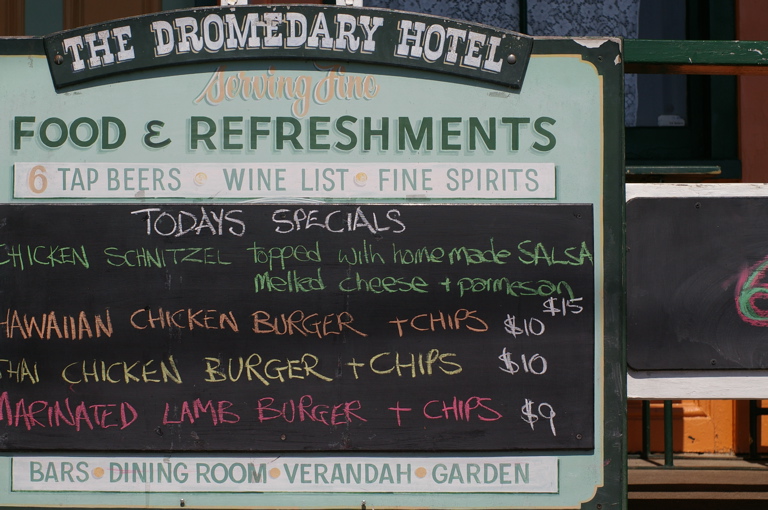 THE DROMEDARY HOTEL
Serving Fine
FOOD & REFRESHMENTS
6 TAP BEERS • WINE LIST • FINE SPIRITS
TODAYS SPECIALS
CHICKEN SCHNITZEL topped with homemade SALSA
Melted cheese + parmesan
$15
HAWAIIAN CHICKEN BURGER + CHIPS $10
THAI CHICKEN BURGER + CHIPS $10
MARINATED LAMB BURGER + CHIPS $9
BARS • DINING ROOM • VERANDAH • GARDEN